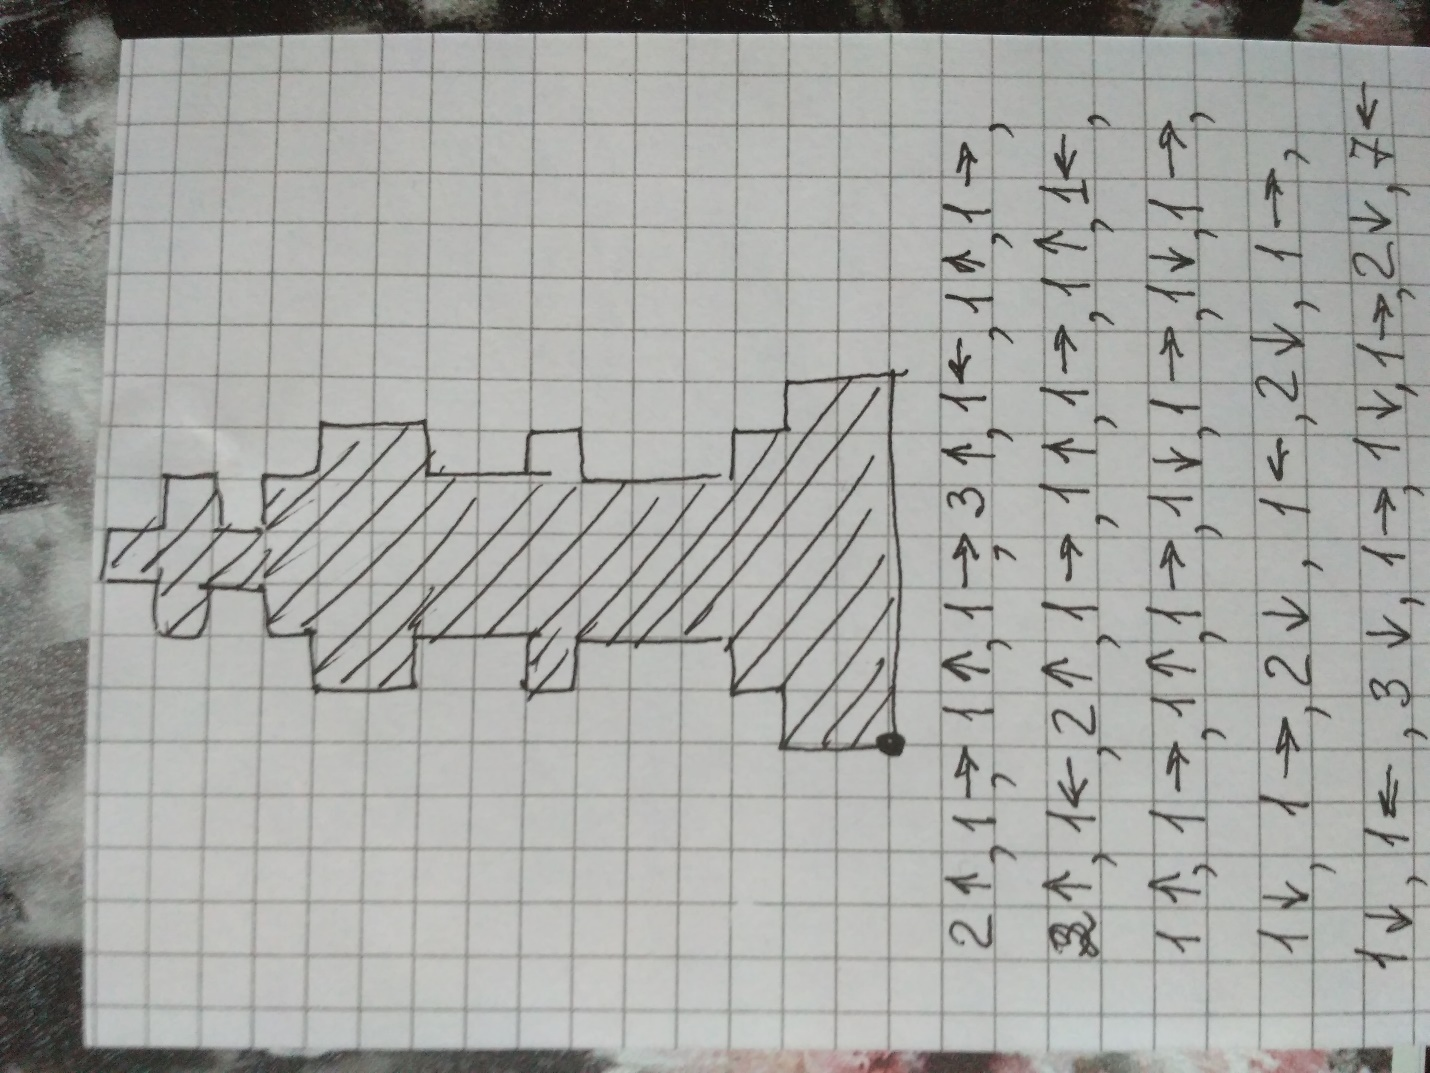 2↑, 1→, 1↑, 1→, 3↑, 1←, 1↑, 1→,
3↑, 1←, 2↑, 1→, 1↑, 1→, 1↑, 1←,
1↑, 1→, 1↑, 1→, 1↓, 1→, 1↓, 1→,
1↓, 1→, 2↓, 1←, 2↓, 1→,
1↓, 1←, 3↓, 1→, 1↓, 1→, 2↓, 7←